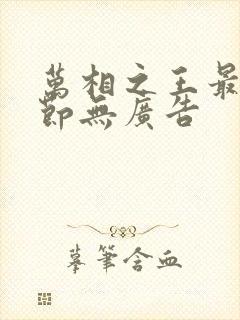 萬相之王最
節無廣告
摹筆含血